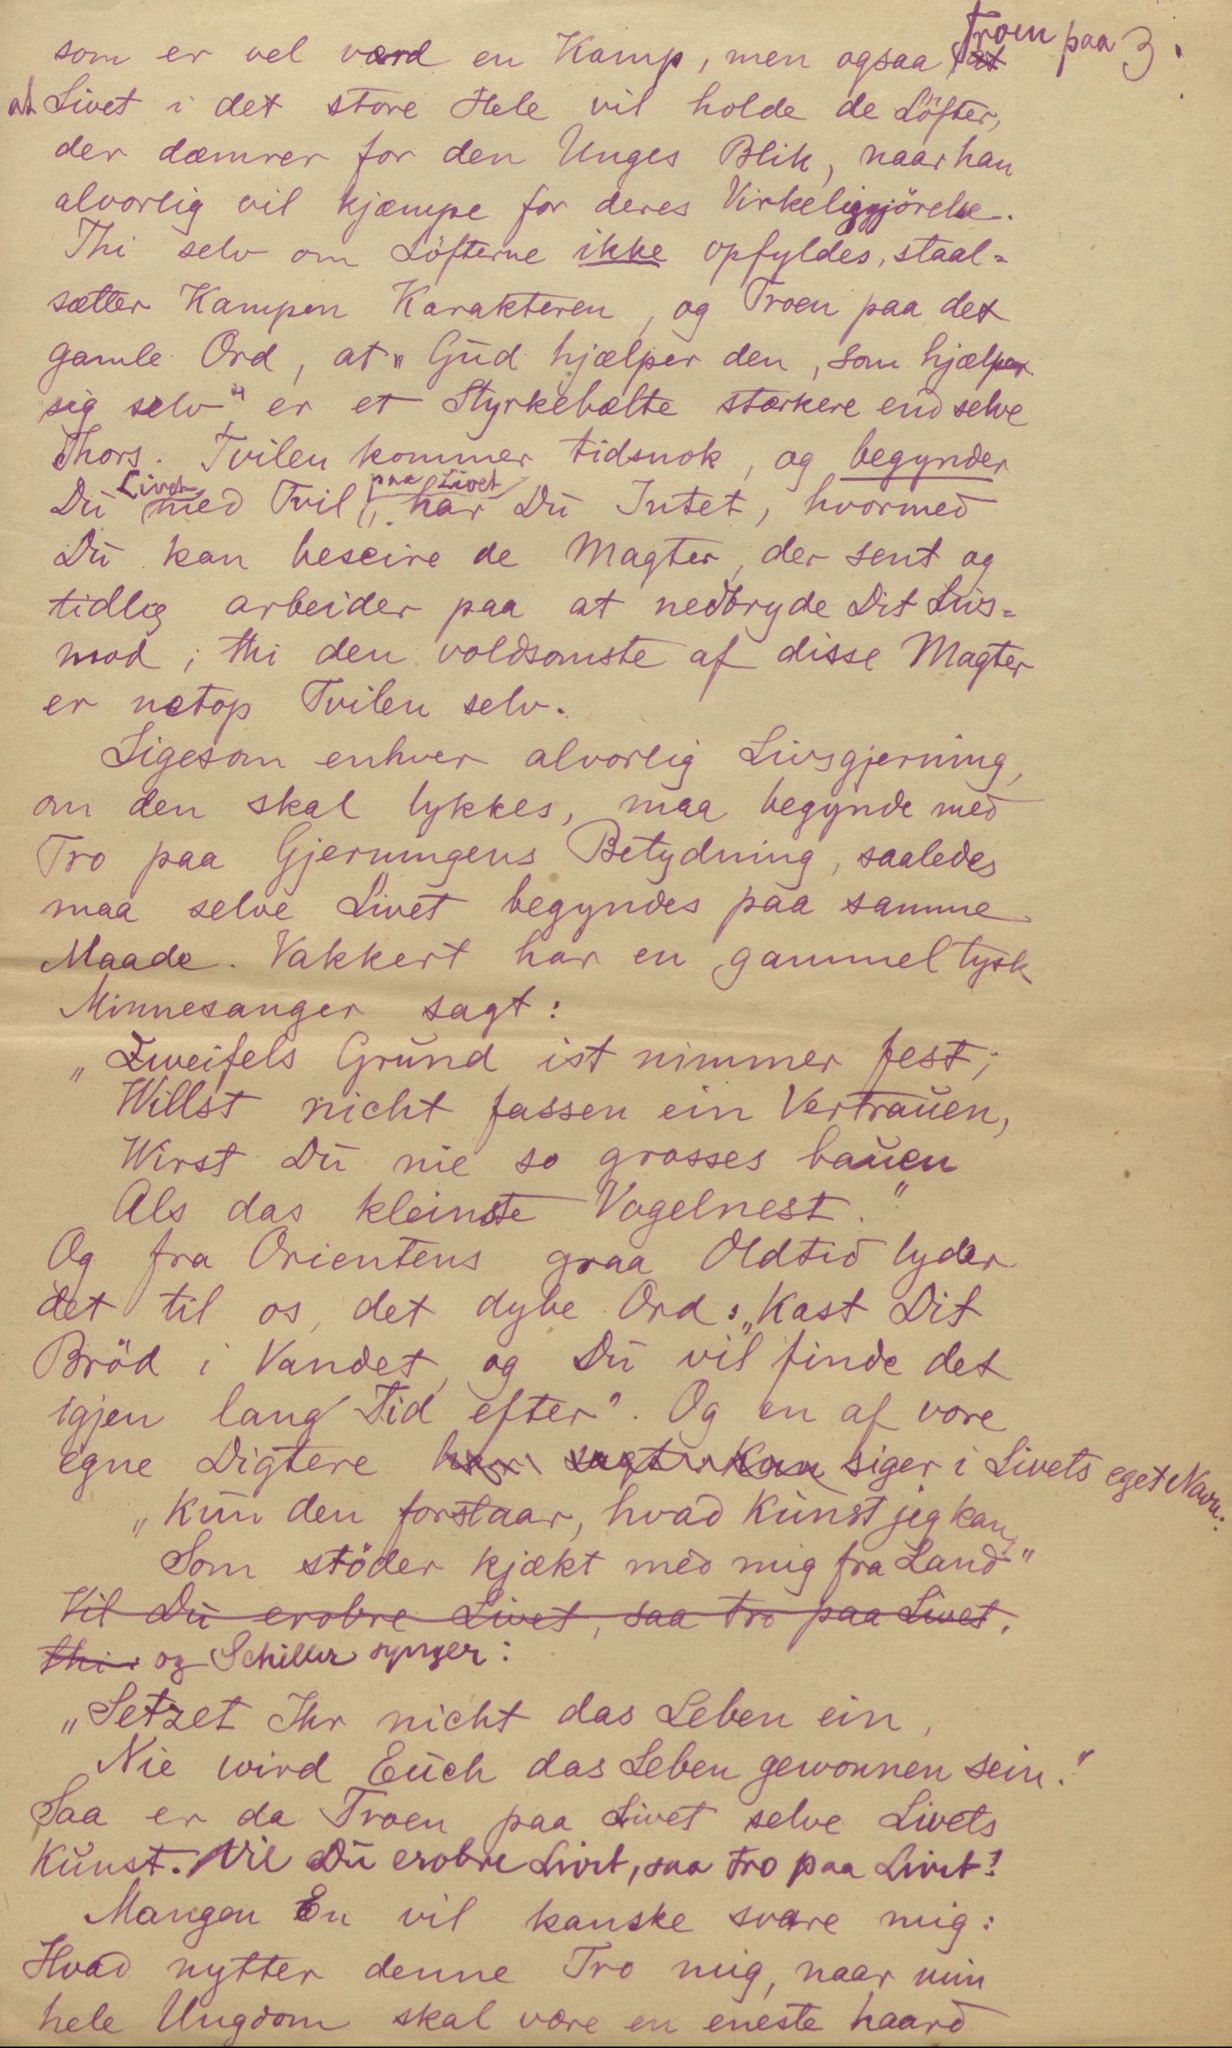 3.
som er vel værd en Kamp, men ogsaa Troen paa
at Livet i det store Hele vil holde de Löfter,
der dæmrer for den Unges Blik, naar han
alvorlig vil kjæmpe for deres Virkeliggjörelse.
Thi selv om Löfterne ikke opfyldes, staal-
sætter Kampen Karakteren, og Troen paa det
gamle Ord, at „Gud hjælper den, som hjælper
sig selv" er et Styrkebælte stærkere end selve
Thors. Tvilen kommer tidsnok, og begynder
Du Livet med Tvil paa Livet, har Du Intet, hvormed
Du kan beseire de Magter, der sent og
tidlig arbeider paa at nedbryde Dit Livs-
mod; thi den voldsomste af disse Magter
er netop Tvilen selv.
Ligesom enhver alvorlig Livsgjerning,
om den skal lykkes, maa begynde med
Tro paa Gjerningens Betydning, saaledes
maa selve Livet begyndes paa samme
Maade. Vakkert har en gammel tysk
Minnesanger sagt:
„Zweifels Grund ist nimmer fest;
Willst nicht fassen ein Vertrauen,
Wirst Du nie so grosses bauen
Als das kleinste Vogelnest."
Og fra Orientens graa Oldtid lyder
det til os, det dybe Ord: „Kast Dit
Bröd i Vandet, og Du vil finde det
igjen lang Tid efter". Og en af vore
egne Digtere har sagt: Kun siger i Livets eget Navn:
„Kun den forstaar, hvad Kunst jeg kan,
Som stöder kjækt med mig fra Land"
Vil Du erobre Livet, saa tro paa Livet,
thi: og Schiller synger:
„Setzet Ihr nicht das Leben ein,
Nie wird Euch das Leben gewonnen sein."
Saa er da Troen paa Livet selve Livets
Kunst. Vil Du erobre Livet, saa tro paa Livet!
Mangen En vil kanske svare mig:
Hvad nytter denne Tro mig, naar min
hele Ungdom skal være en eneste haard